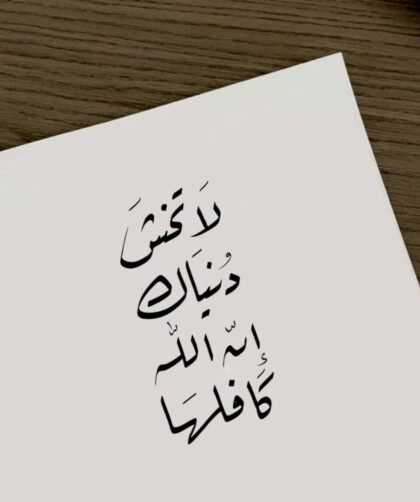 لَا تخشَ
دُنيَاك
إنّ اللّٰه
كَافلهَا